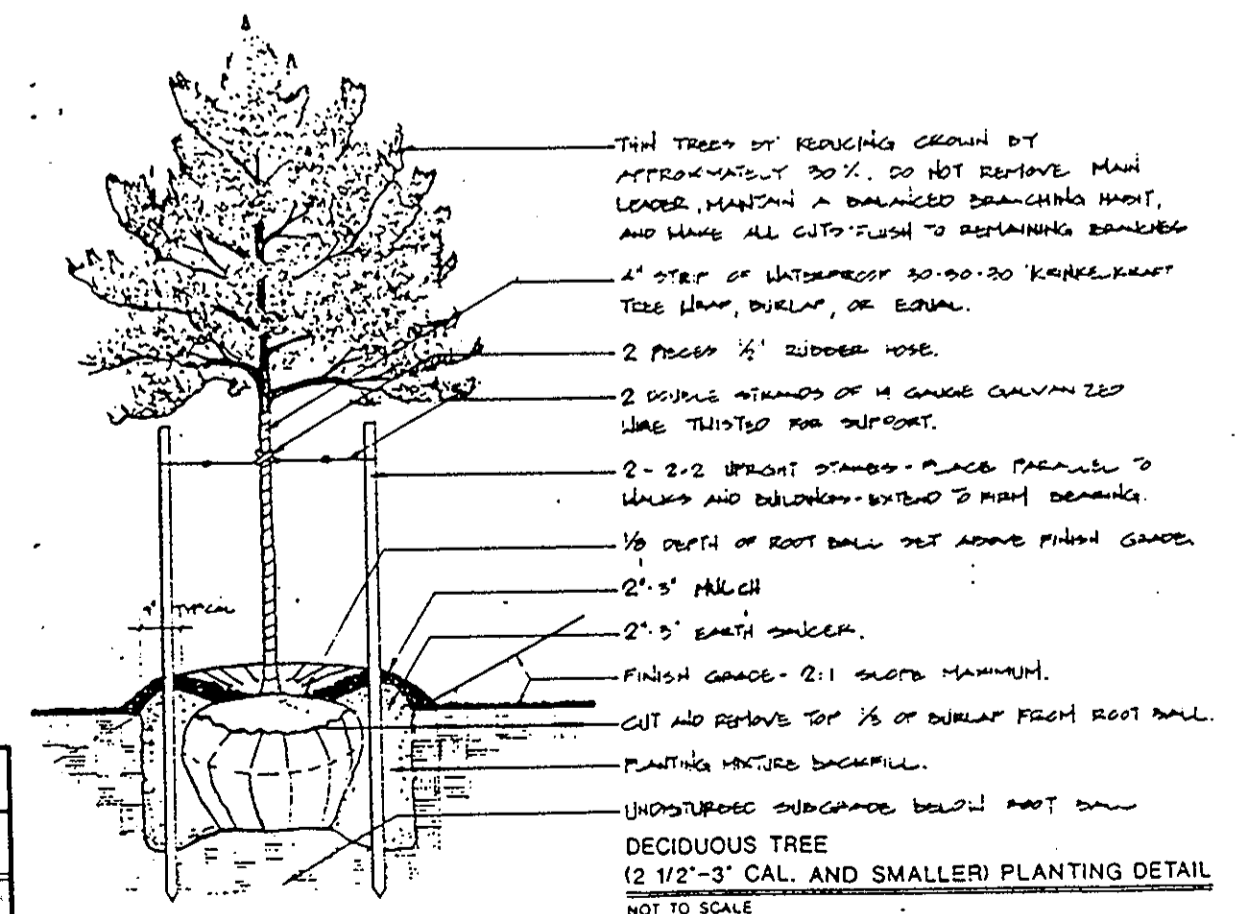 THIN TREES BY REDUCING CROWN BY
APPROXIMATELY 30%. DO NOT REMOVE MAIN
LEADER, MAINTAIN A BALANCED BRANCHING HABIT,
AND MAKE ALL CUTS FLUSH TO REMAINING BRANCHES
4" STRIP OF WATERPROOF 30-30-30 KRINKEL KRAFT
TREE WRAP, BURLAP, OR EQUAL.
2 PIECES 1/2" RUBBER HOSE.
2 DOUBLE STRANDS OF 14 GAUGE GALVANIZED
WIRE TWISTED FOR SUPPORT.
2 - 2x2 UPRIGHT STAKES - PLACE PARALLEL TO
WALKS AND BUILDINGS - EXTEND TO FIRM BEARING.
1/8 DEPTH OF ROOT BALL SET ABOVE FINISH GRADE.
TYPICAL
2"-3" MULCH
2"-3" EARTH SAUCER.
FINISH GRADE - 2:1 SLOPE MAXIMUM.
CUT AND REMOVE TOP 1/3 OF BURLAP FROM ROOT BALL.
PLANTING MIXTURE BACKFILL.
UNDISTURBED SUBGRADE BELOW ROOT BALL
DECIDUOUS TREE
(2 1/2"-3" CAL. AND SMALLER) PLANTING DETAIL
NOT TO SCALE